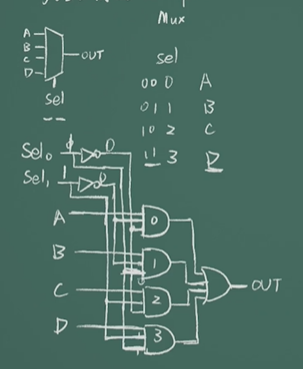 Mux
A
B
C
D
OUT
sel
sel
00 0 A
01 1 B
10 2 C
11 3 D
Sel0
Sel1 1
A
B
C
D
0
1
2
3
OUT